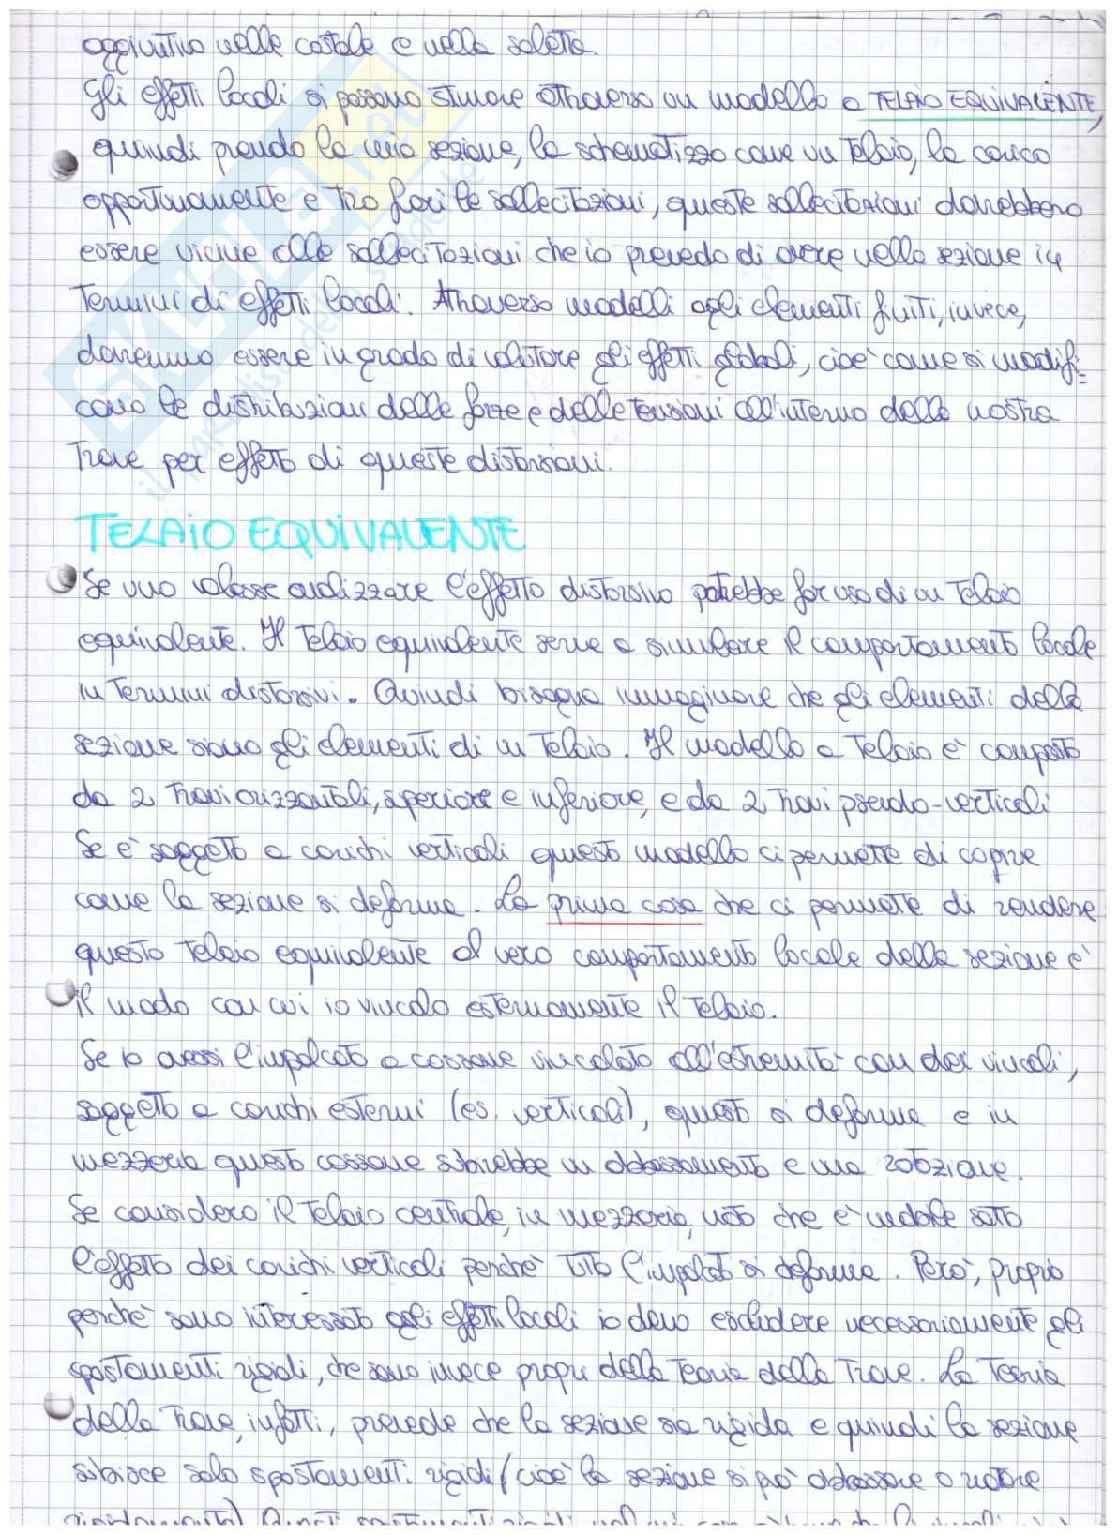 aggiuntivo nelle costole e nella soletta.
Gli effetti locali si possono stimare attraverso un modello a TELAIO EQUIVALENTE,
quindi prendo la mia sezione, la schematizzo come un telaio, la carico
opportunamente e tiro fuori le sollecitazioni, queste sollecitazioni dovrebbero
essere vicine alle sollecitazioni che io prevedo di avere nella sezione in
termini di effetti locali. Attraverso modelli agli elementi finiti, invece,
dovremmo essere in grado di valutare gli effetti globali, cioè come si modifi-
cano le distribuzioni delle forze e delle tensioni all'interno della nostra
trave per effetto di queste distorsioni.
TELAIO EQUIVALENTE
Se uno volesse analizzare l'effetto distorsivo potrebbe far uso di un telaio
equivalente. Il telaio equivalente serve a simulare il comportamento locale
in termini distorsivi. Quindi bisogna immaginare che gli elementi della
sezione siano gli elementi di un telaio. Il modello a telaio è composto
da 2 travi orizzontali, superiore e inferiore, e da 2 travi pseudo-verticali
Se è soggetto a carichi verticali questo modello ci permette di capire
come la sezione si deforma. La prima cosa che ci permette di rendere
questo telaio equivalente al vero comportamento locale della sezione è
il modo con cui io vincolo esternamente il telaio.
Se io avessi l'impalcato a cassone vincolato all'estremità con dei vincoli,
soggetto a carichi esterni (es. verticali), questo si deforma e in
mezzeria questo cassone subirebbe un abbassamento e una rotazione.
Se considero il telaio centrale, in mezzeria, noto che è cedevole sotto
l'effetto dei carichi verticali perchè tutto l'impalcato si deforma. Però, proprio
perchè sono interessato agli effetti locali io devo escludere necessariamente gli
spostamenti rigidi, che sono invece propri della teoria della trave. La teoria
della trave, infatti, prevede che la sezione sia rigida e quindi la sezione
subisce solo spostamenti rigidi (cioè la sezione si può abbassare o ruotare